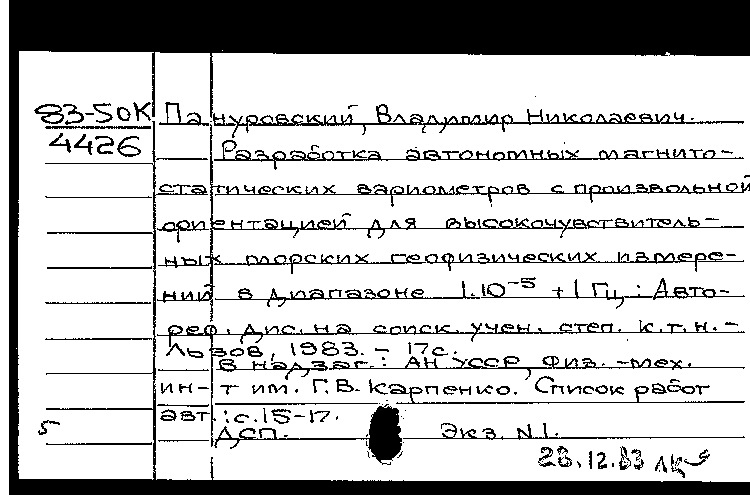 83-50К Пануровский, Владимир Николаевич.
4426 Разработка автономных магнито-
статических вариометров с произвольной
ориентацией для высокочувствитель-
ных морских геофизических измере-
ний в диапазоне 1.10⁻⁵ +1 Гц.: Авто-
реф. дис. на соиск. учен. степ. к.т.н. -
Львов, 1983. - 17с.
В надзаг.: АН УССР, Физ. -мех.
ин-т им. Г.В. Карпенко. Список работ
авт.: с.15-17.
5 ДСП. Экз. N1.
28.12.83